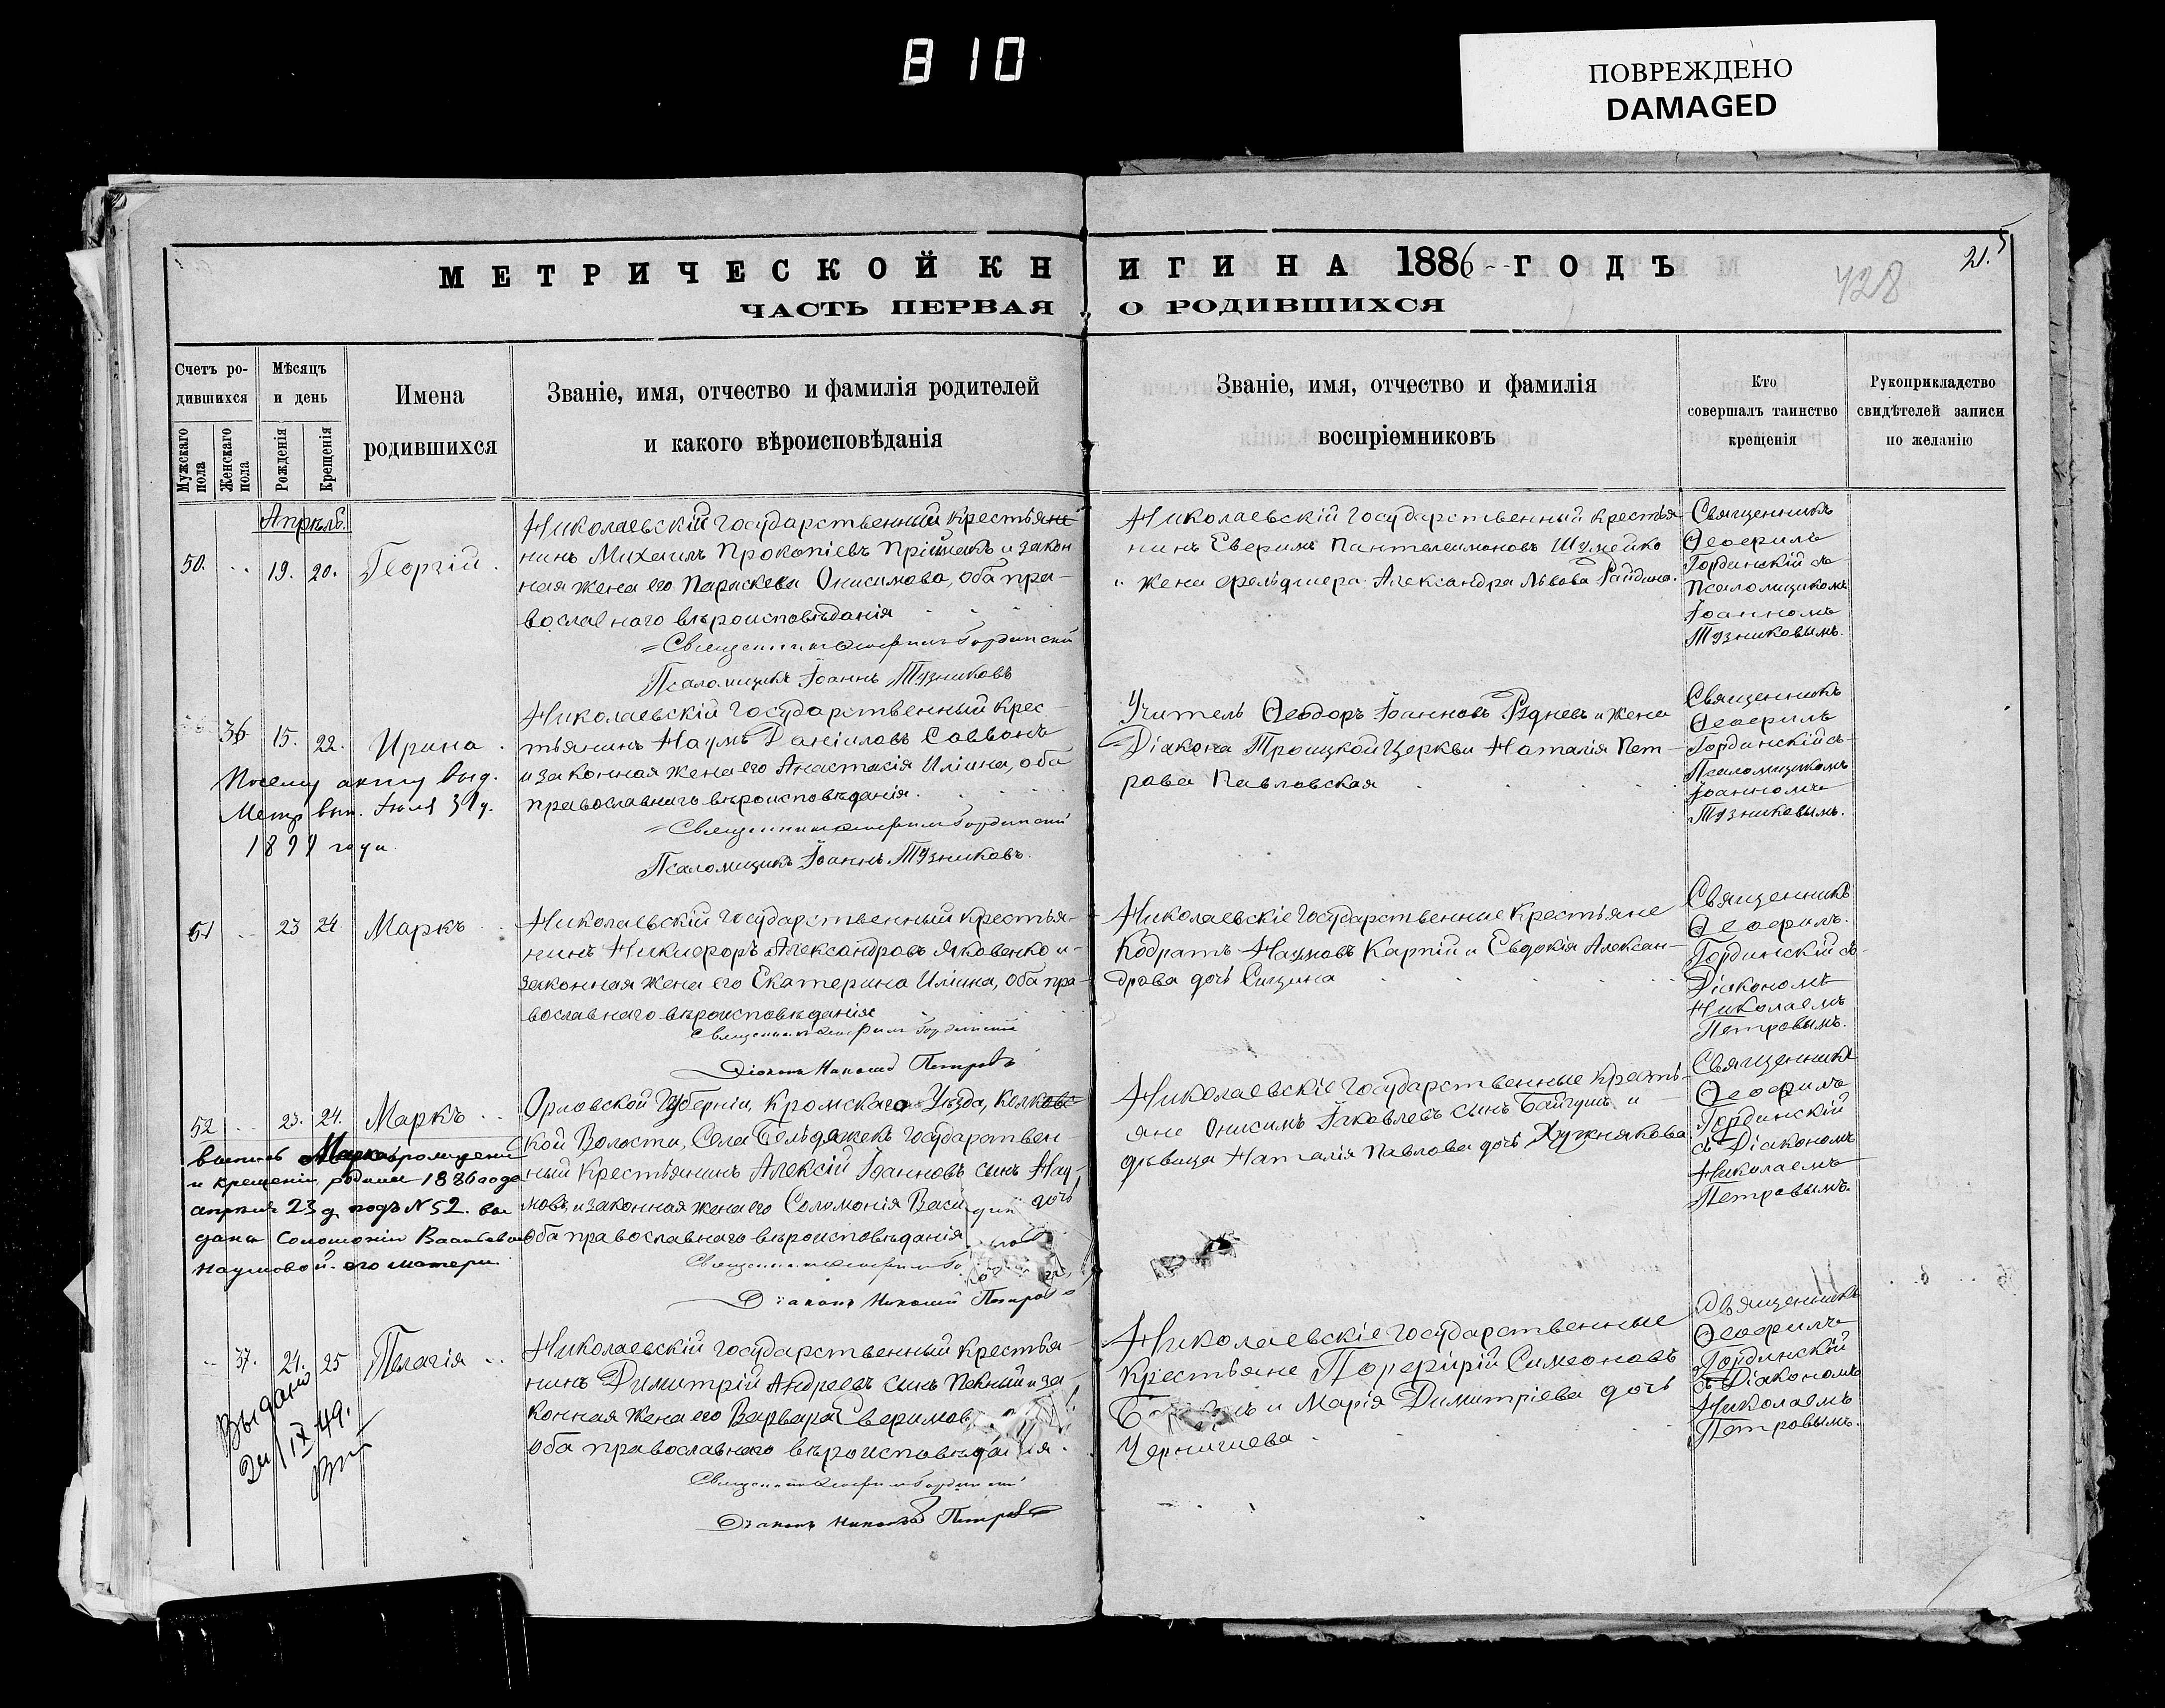 810
ПОВРЕЖДЕНО
DAMAGED
МЕТРИЧЕСКОЙ КНИГИ НА 1886 ГОДЪ
21.
428
ЧАСТЬ ПЕРВАЯ О РОДИВШИХСЯ
Счетъ ро-
дившихся
Мужскаго пола
Женскаго пола
Мѣсяцъ
и день
Рожденія
Крещенія
Имена
родившихся
Званіе, имя, отчество и фамилія родителей
и какого вѣроисповѣданія
Званіе, имя, отчество и фамилія
воспріемниковъ
Кто
совершалъ таинство
крещенія
Рукоприкладство
свидѣтелей записи
по желанію
Апрѣль
50. 19. 20. Георгій
Николаевскій Государственный крестья
нинъ Михаилъ Прокопіевъ и закон
ная жена его Параскева Онисимова, оба пра-
вославнаго вѣроисповѣданія
Священникъ Ѳеофилъ Гординскій
Псаломщикъ Іоаннъ Тузниковъ
Николаевскій Государственный крестья
нинъ Пантелеимоновъ Шумейко
жена фельдшера Александра Львова
Священникъ
Ѳеофилъ
Гординскій съ
Псаломщикомъ
Іоанномъ
Тузниковымъ.
36. 15. 22. Ирина
Посему акту выд.
Метр. вып. Іюля 31 д.
года
Николаевскій Государственный крес-
тьянинъ Наумъ Даніиловъ
и законная жена его Анастасія Иліина, оба
православнаго вѣроисповѣданія.
Священникъ Ѳеофилъ Гординскій
Псаломщикъ Іоаннъ Тузниковъ.
Учитель Ѳеодоръ Іоанновъ Рудневъ и жена
Діакона Троицкой Церкви Наталія Пет-
рова Павловская
Священникъ
Ѳеофилъ
Гординскій съ
Псаломщикомъ
Іоанномъ
Тузниковымъ.
51 23 24 Маркъ
Николаевскій Государственный крестья-
нинъ Никифоръ Александровъ Яковенко и
законная жена его Екатерина Иліина, оба пра-
вославнаго вѣроисповѣданія
Священникъ Ѳеофилъ Гординскій
Діаконъ Николай Петровъ
Николаевскіе Государственные крестьяне
Кодратъ Наумовъ Карпій и Евдокія Алексан-
дрова дочь
Священникъ
Ѳеофилъ
Гординскій съ
Діакономъ
Николаемъ
Петровымъ.
52 23. 24. Маркъ
выпись Марка о рожденіи
и крещеніи родивш 1886 года
апреля 23 д подъ N 52. вы
дана Соломоніи Васильевой
Наумовой его матери
Орловской Губерніи, Кромскаго Уѣзда,
кой Волости, Села Бельдяжекъ Государствен-
ный крестьянинъ Алексій Іоанновъ сынъ Нау-
мовъ и законная жена его Соломонія дочь
оба православнаго вѣроисповѣданія
Священникъ Ѳеофилъ
Діаконъ Николай Петровъ
Николаевскіе Государственные кресть-
яне Онисимъ Іаковлевъ сынъ Байгушъ и
дѣвица Наталія Павлова дочь Хужнякова
Священникъ
Ѳеофилъ
Гординскій
съ Діакономъ
Николаемъ
Петровымъ.
37. 24. 25 Пелагія
Выдано
IX 49.
Николаевскій Государственный крестья-
нинъ Димитрій Андреевъ сынъ и за-
конная жена его Варвара
оба православнаго вѣроисповѣданія.
Священникъ Ѳеофилъ Гординскій
Діаконъ Николай Петровъ
Николаевскіе Государственные
крестьяне Порфирій Симеоновъ
и Марія Димитріева дочь
Чернышева
Священникъ
Ѳеофилъ
Гординскій
съ Діакономъ
Николаемъ
Петровымъ.